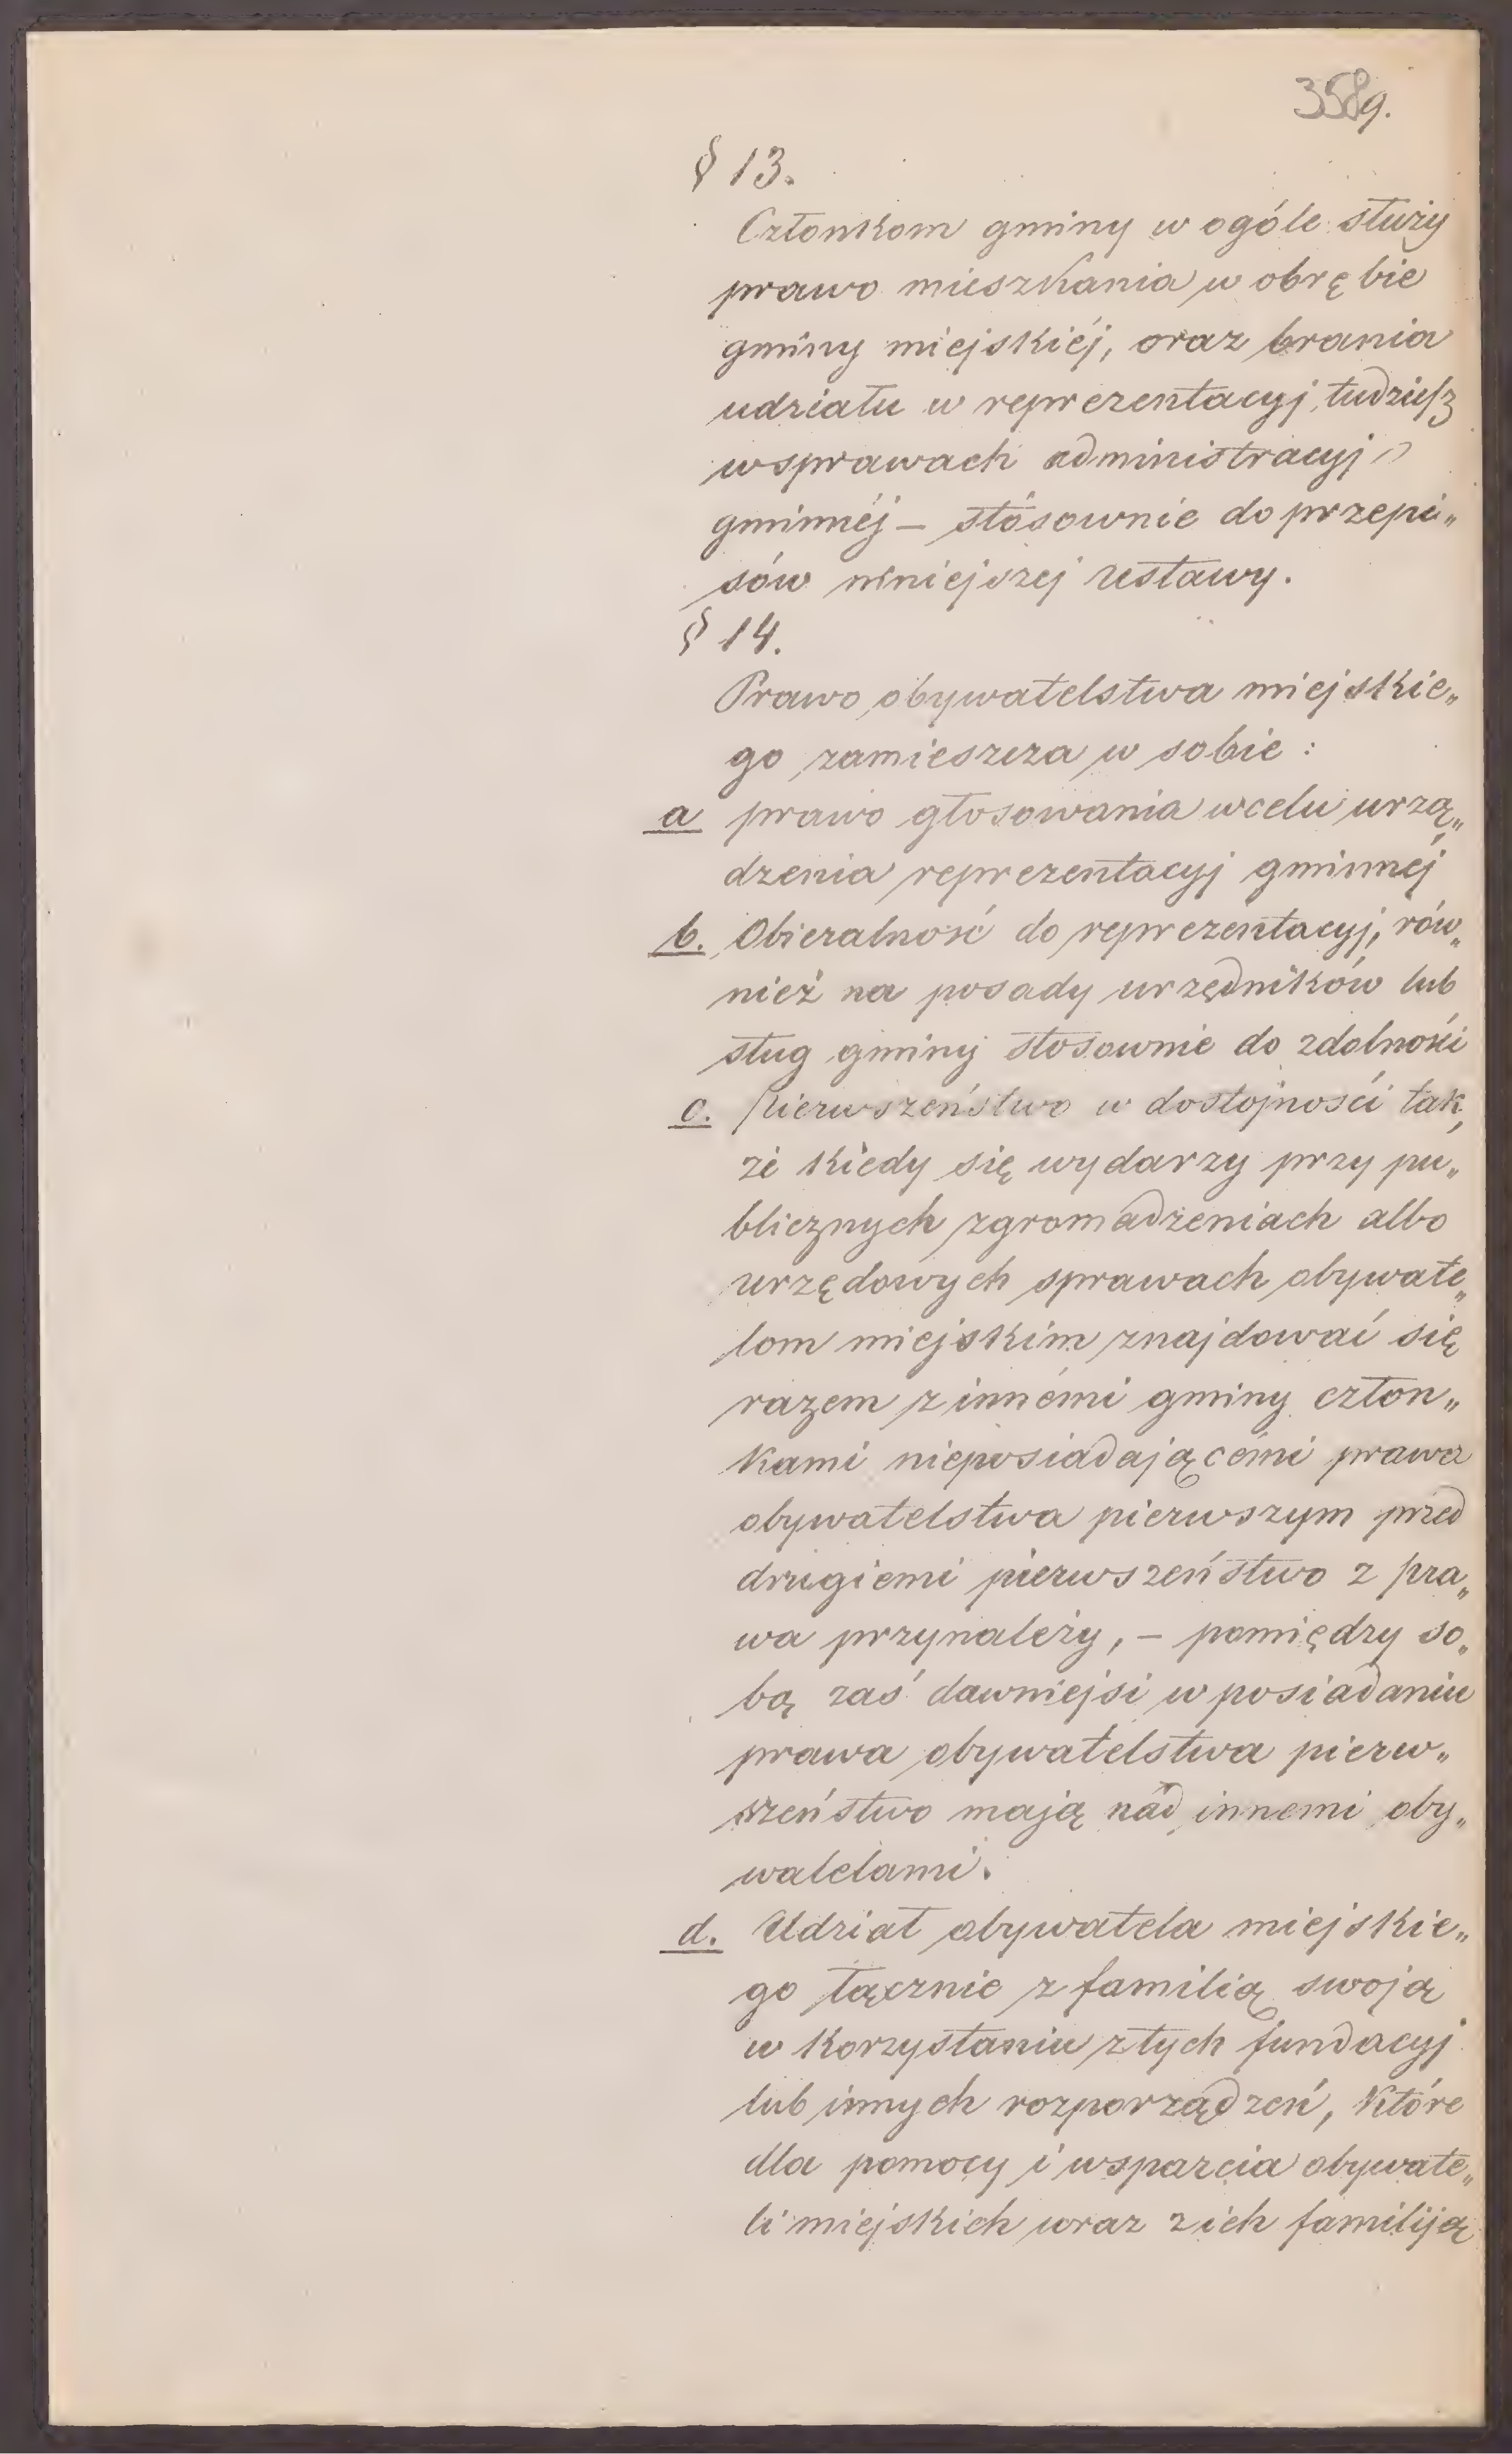 3589.
§ 13.
Członkom gminy w ogóle służy
prawo mieszkania w obrębie
gminy miejskiéj, oraz brania
udziału w reprezentacyj, tudzież
w sprawach administracyj
gminnéj — stósownie do przepi„
sów niniejszej ustawy.
§ 14.
Prawo obywatelstwa miejskie„
go zamieszcza w sobie :
a prawo głosowania w celu urzą„
dzenia reprezentacyj gminnéj
b. Obieralność do reprezentacyj, rów„
nież na posady urzędników lub
sług gminy stosownie do zdolności
c. pierwszeństwo w dostojności tak,
że kiedy się wydarzy przy pu„
blicznych zgromadzeniach albo
urzędowych sprawach obywate„
lom miejskim znajdować się
razem z innémi gminy człon„
kami nieposiadającémi prawa
obywatelstwa pierwszym przed
drugiemi pierwszeństwo z pra„
wa przynależy, — pomiędzy so„
bą zaś dawniejsi w posiadaniu
prawa obywatelstwa pierw„
szeństwo mają nad innemi oby„
watelami.
d. Udział obywatela miejskie„
go łącznie z familią swoją
w korzystaniu z tych fundacyj
lub innych rozporządzeń, które
dla pomocy i wsparcia obywate„
li miejskich wraz z ich familiją